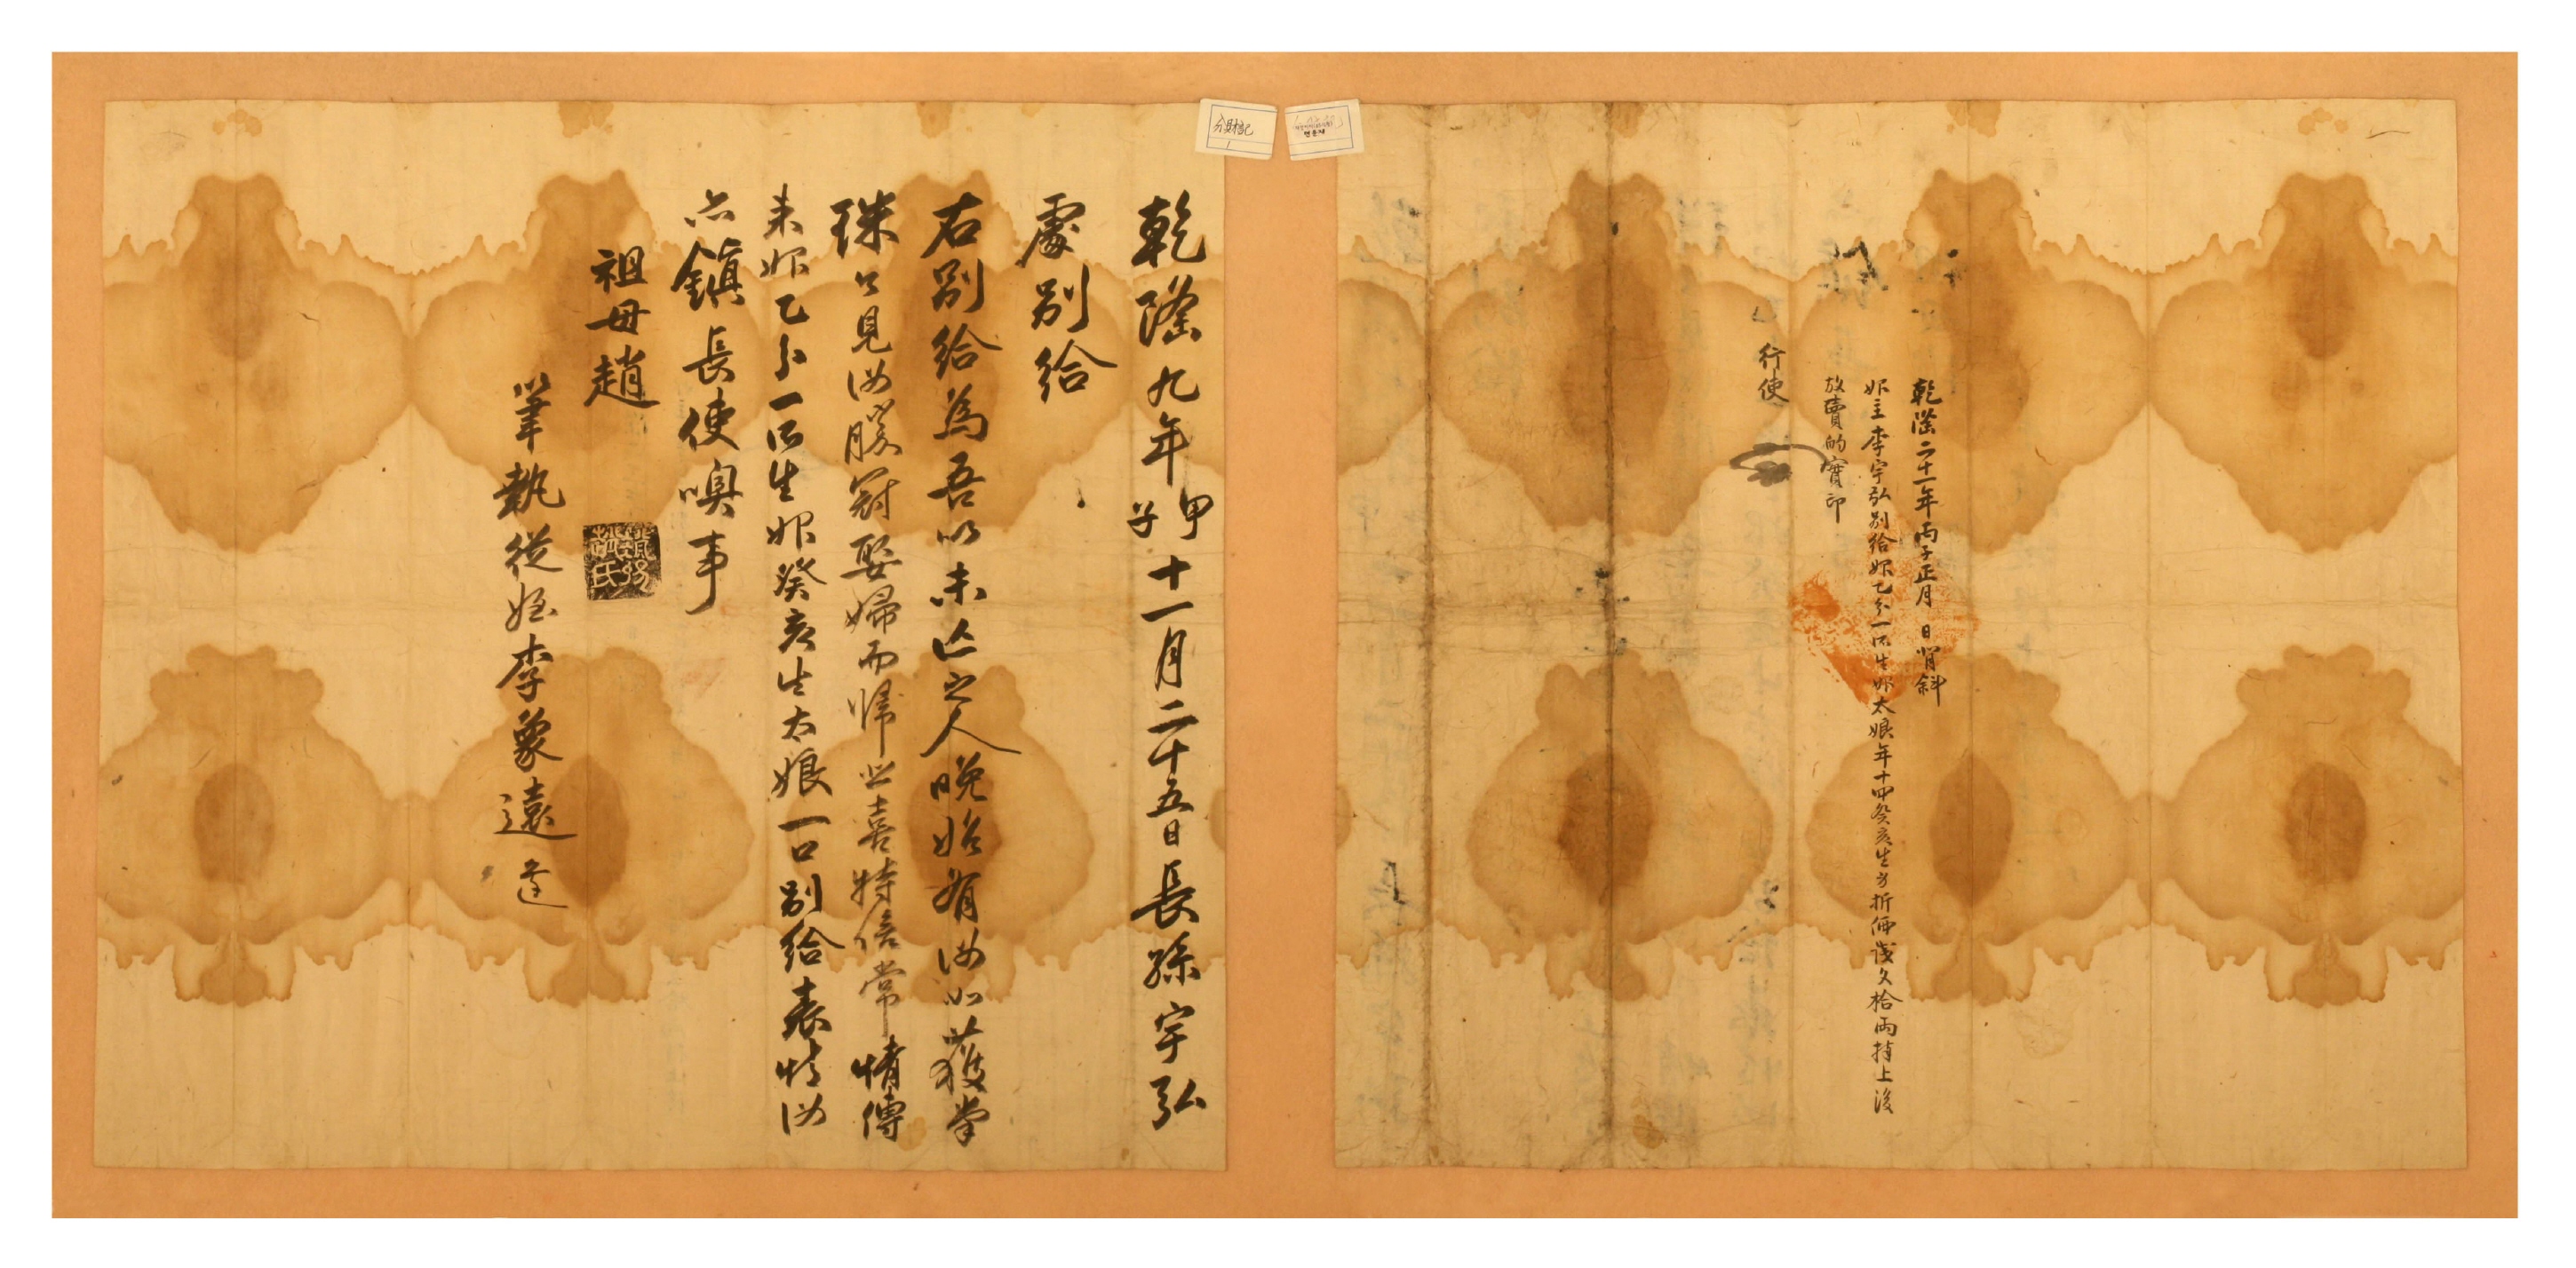 乾隆九年甲子十一月二十五日長孫宇弘
處別給
右別給爲吾以未亡之人晚始有汝如獲掌
珠今見汝勝冠娶婦而歸此喜特倍常情傳
來婢乙分一所生婢癸亥生太娘一口別給表情汝
亦鎭長使喚事
祖母趙
筆執從侄李象遠
分財記
1
乾隆二十一年丙子正月 日背斜
婢主李宇弘別給婢乙分一所生婢太娘年十四癸亥生身折価戔文拾両捧上後
放賣的實印
行使